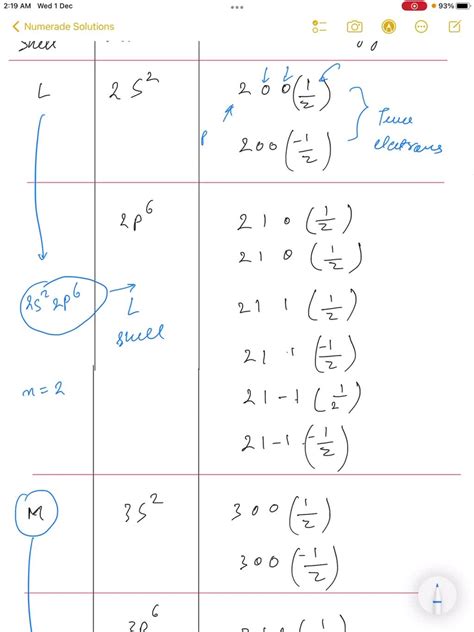 2:19 AM Wed 1 Dec
93%
Numerade Solutions
Shell
L 2S² 2 0 0 (1/2)
P
200 (-1/2)
Two electrons
2p⁶ 2 1 0 (1/2)
2 1 0 (1/2)
2S² 2p⁶ → L shell
2 1 1 (1/2)
2 1 1 (-1/2)
n = 2
2 1 -1 (1/2)
2 1 -1 (-1/2)
M 3S² 3 0 0 (1/2)
3 0 0 (-1/2)
3p⁶